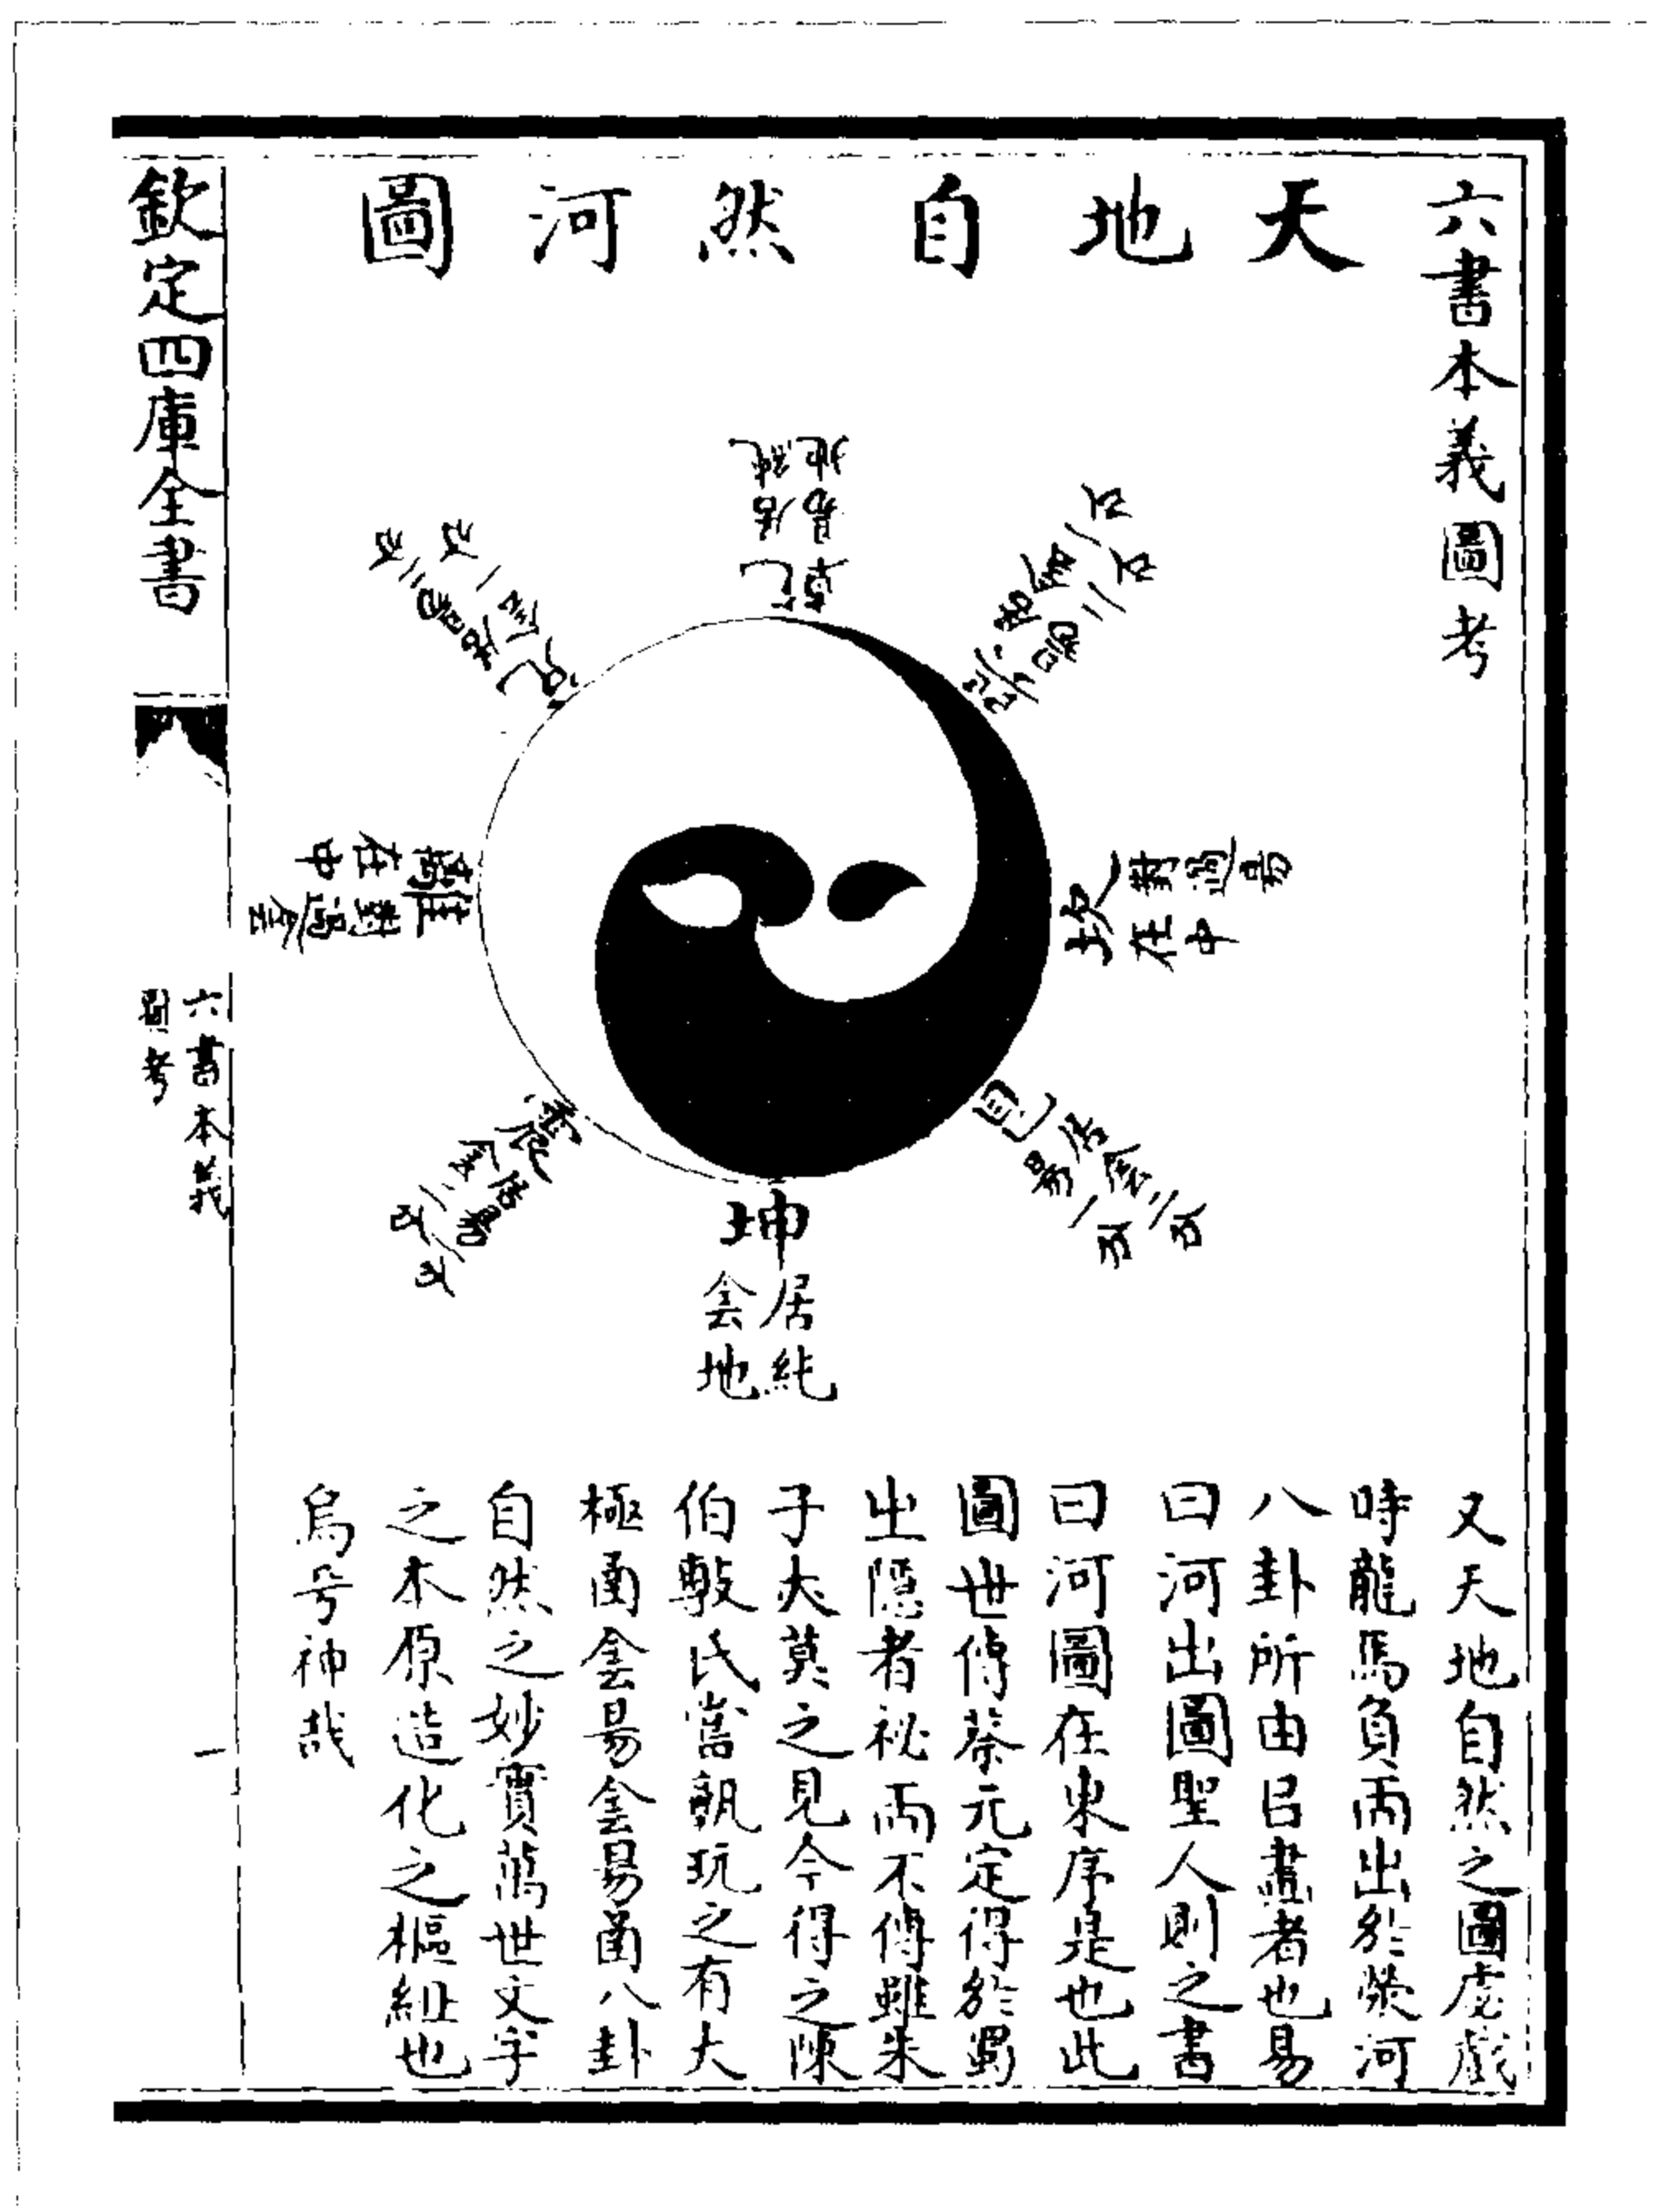 六書本義圖考
天地自然河圖
乾居純
昜地
兌居昜二分
侌一分
離對過侌
在中
震居昜一分
侌二分
坤居純
侌地
艮居侌二分
昜一分
坎對過昜
在中
巽居侌一分
昜二分
又天地自然之圖虙戲
時龍馬負而出於滎河
八卦所由㠯畫者也易
曰河出圖聖人則之書
曰河圖在東序是也此
圖世傳蔡元定得於蜀
之隱者祕而不傳雖朱
子亦莫之見今得之陳
伯敷氏嘗孰玩之有大
極圅侌昜侌昜圅八卦
自然之妙實萬世文字
之本原造化之樞紐也
烏乎神哉
欽定四庫全書
六書本義
圖考
一